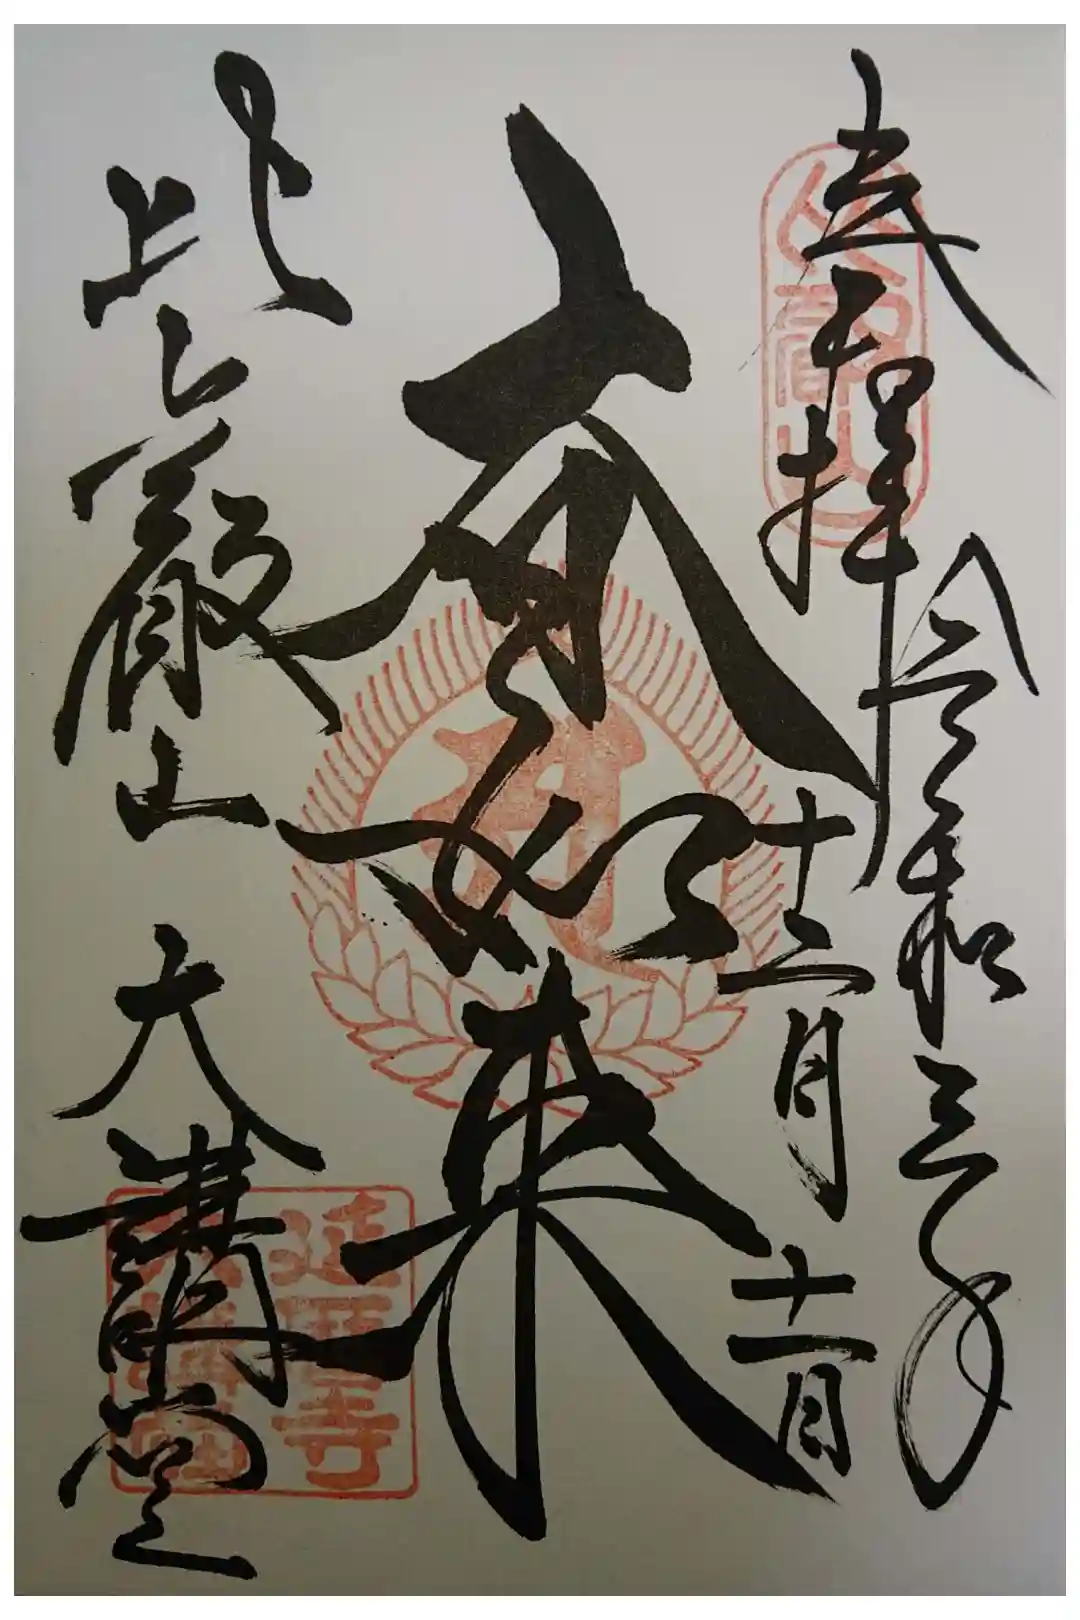 令和三年
奉拝
十二月十一日
大日如来
比叡山 大講堂
比叡山
延暦寺